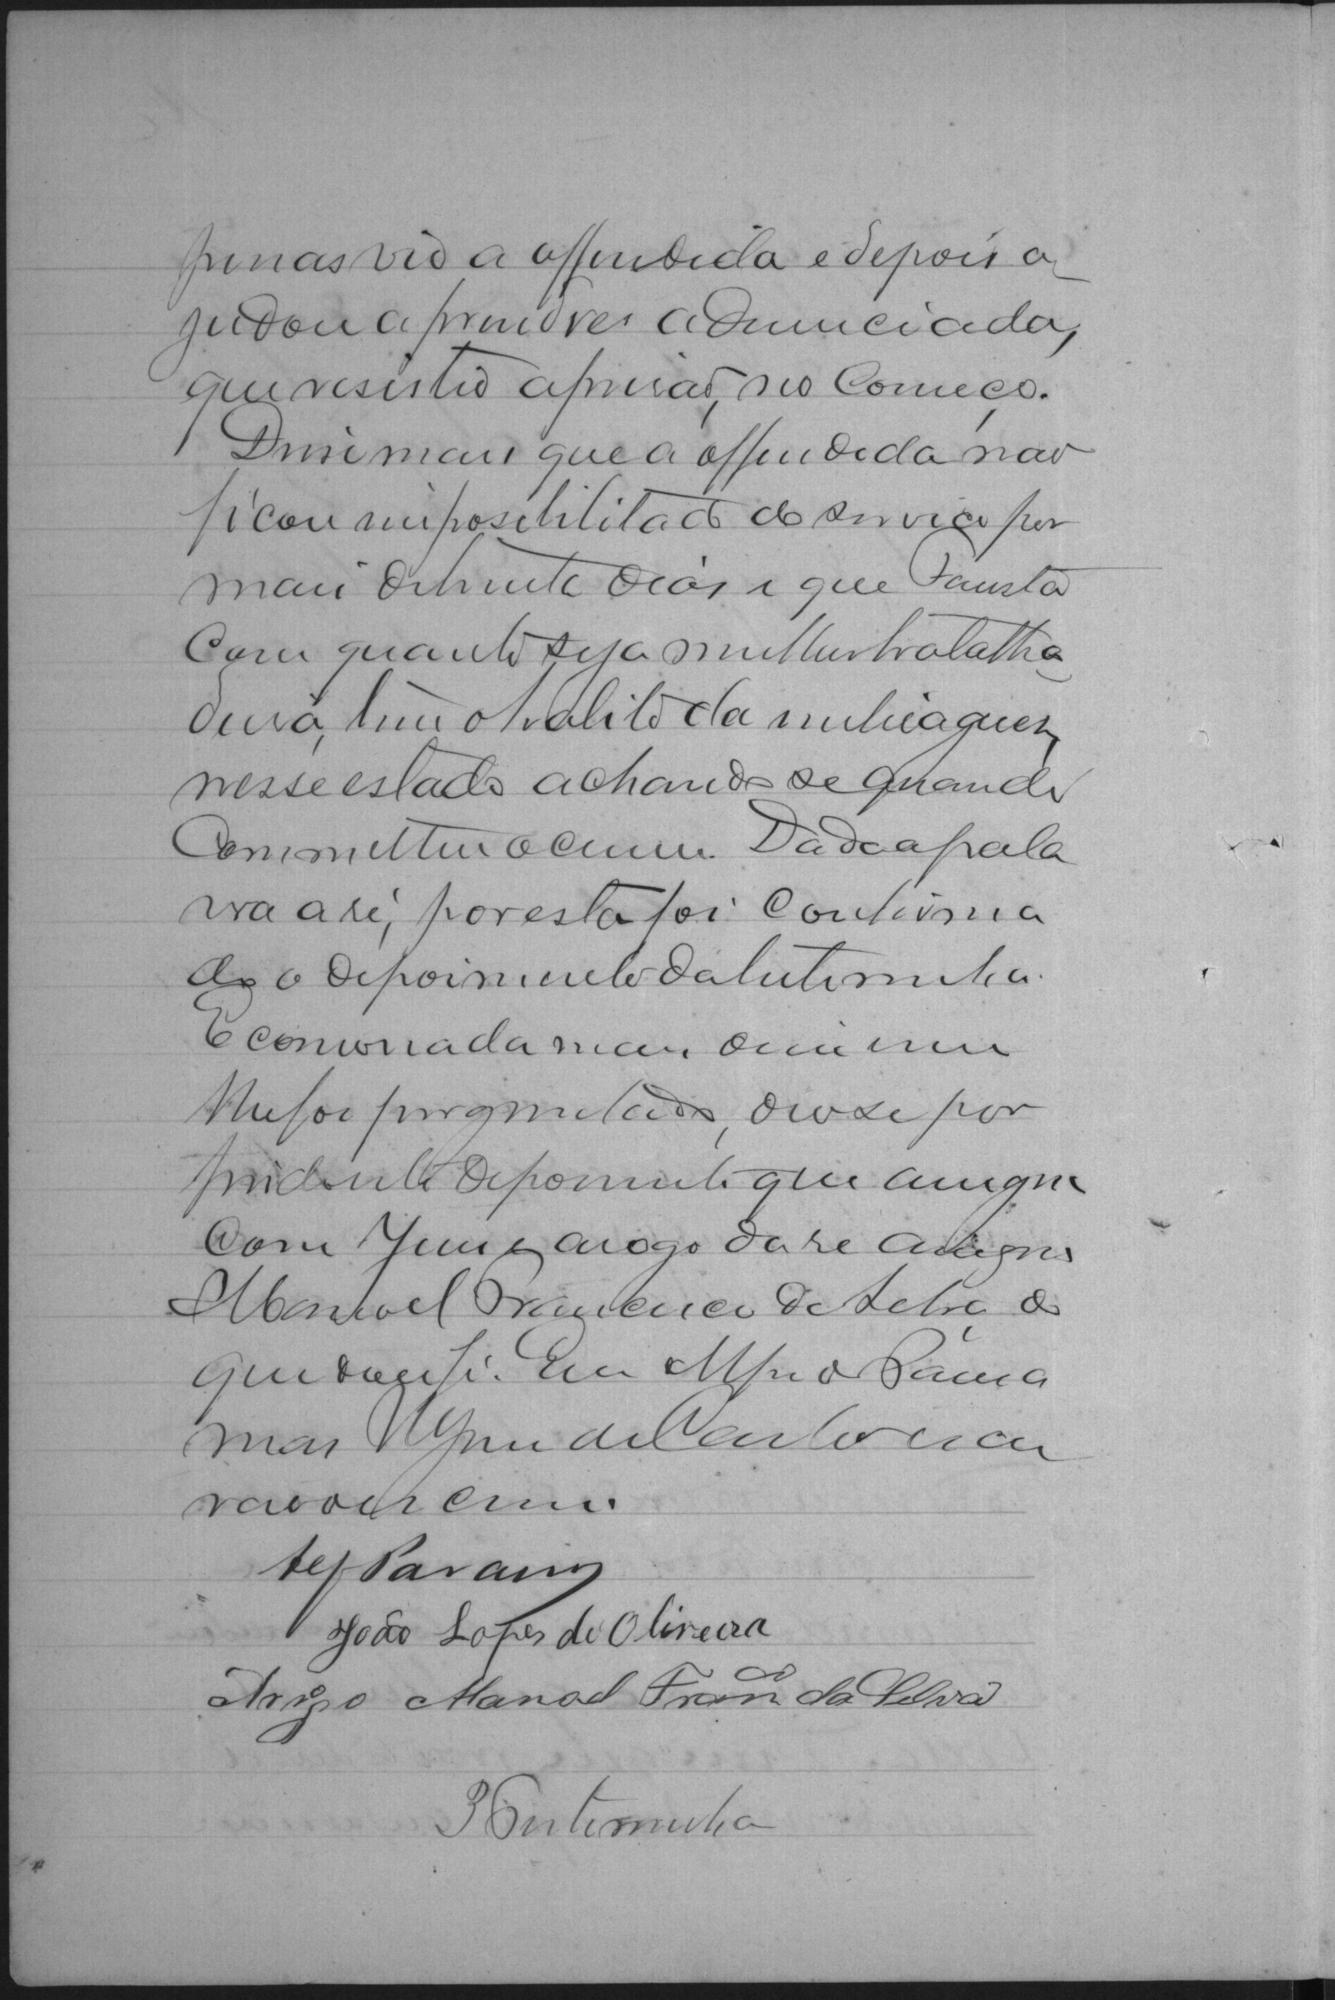 penas vio a offendida e depois a
judou a prender a denunciada,
que resistio a prisão, no começo.
Disse mais que a offendida não
ficou impossibilitada do serviço por
mais de trinta dias e que Fausta
com quanto seja mulher trabalha
deira, tem o habito da embriaguez,
nesse estado achando se quando
commetteu o crime. Dada a pala
vra a ré, por esta foi confirma
do o depoimento da testemunha.
E como nada mais disse nem
lhe foi perguntado, deo se por
findo este depoimento que assigna
com Juiz, a rogo da ré assigna
Manoel Francisco da Silva, do
que dou fé. Eu
mas escri
vão o escrevi.
João Lopes de Oliveira
Arogo Manoel Fran.co da Silva
3ª testemunha